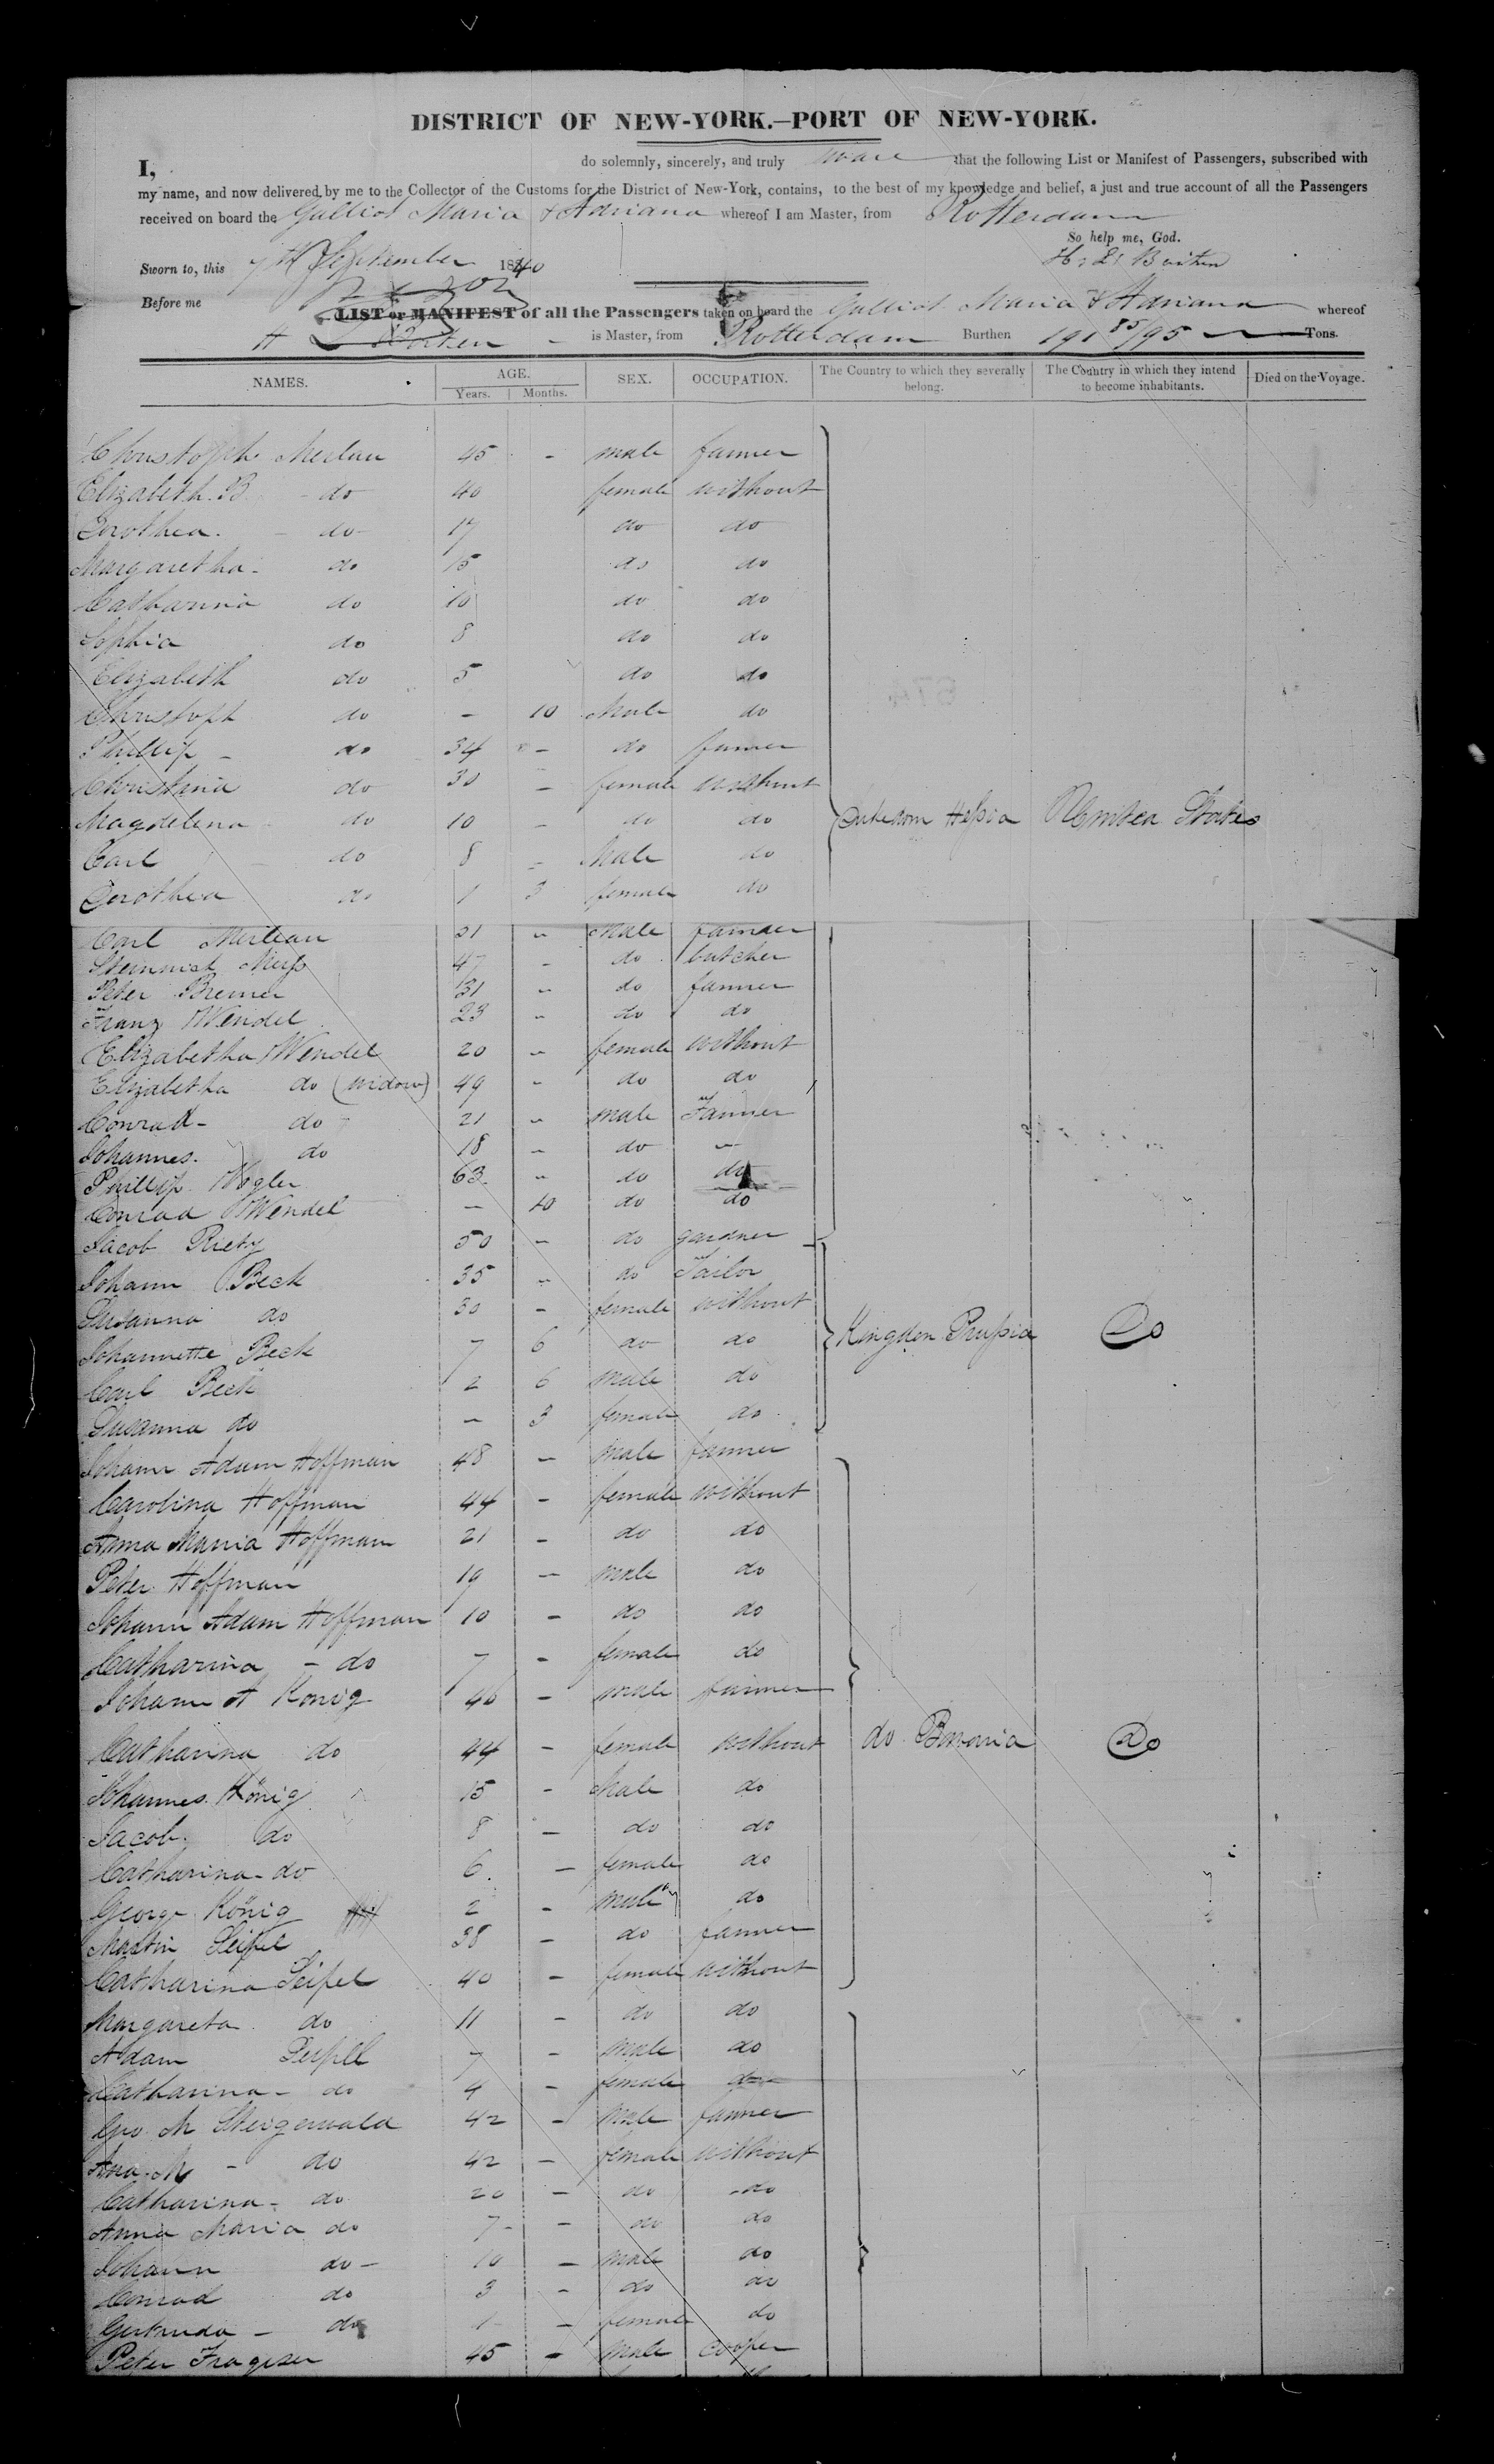 DISTRICT OF NEW-YORK.—PORT OF NEW-YORK.
I, do solemnly, sincerely, and truly swear that the following List or Manifest of Passengers, subscribed with
my name, and now delivered by me to the Collector of the Customs for the District of New-York, contains, to the best of my knowledge and belief, a just and true account of all the Passengers
received on board the Galliot Maria & Adriana whereof I am Master, from Rotterdam
So help me, God.
Sworn to, this 7th September 1840 H. L.
Before me
LIST or MANIFEST of all the Passengers taken on board the Galliot Maria & Adriana whereof
H is Master, from Rotterdam Burthen 191 85/95 Tons.
NAMES. AGE. SEX. OCCUPATION. The Country to which they severally belong. The Country in which they intend to become inhabitants. Died on the Voyage.
Years. Months.
Christoph Merlau 45 - male farmer
Elizabeth. B - do 40 female without
Dorothea. - do 17 do do
Margaretha - do 15 do do
Catharina do 10 do do
Sophia do 8 do do
Elizabeth do 5 do do
Christoph do - 10 Male do
Phillip - do 34 - do farmer
Christina do 30 - female without
Magdelena do 10 - do do Hessia United States
Carl do 8 - Male do
Dorothea do 1 3 female do
Carl Merlau 21 " Male farmer
47 - do butcher
Peter Bremer 31 " do farmer
Franz Wendel 23 " do do
Elizabetha Wendel 20 " female without
Elizabetha do (widow) 49 " do do
Conrad - do 21 " male Farmer
Johannes. do 18 " do "
Phillip Vogler 63 " do do
Conrad Wendel - 10 do do
Jacob Rietz 50 " do gardner
Johann Beck 35 " do Tailor
Susanna do 30 - female without
Johannette Beck 7 6 do do Kingdon Prussia Do
Carl Beck 2 6 male do
Susanna do " 3 female do
Johann Adam Hoffman 48 - male farmer
Carolina Hoffman 44 - female without
Anna Maria Hoffman 21 - do do
Peter Hoffman 19 - male do
Johann Adam Hoffman 10 - do do
Catharina - do 7 - female do
Johann A König 46 - male farmer
Catharina do 44 - female without do Bavaria Do
Johannes König 15 - Male do
Jacob. do 8 - do do
Catharina - do 6. - female do
George König 2 - male do
Martin Seipel 38 - do farmer
Catharina Seipel 40 - female without
Margareta do 11 - do do
Adam 7 - male do
Catharina - do 4 - female do
Geo M Steigerwald 42 - Male farmer
Ana. M - do 42 - female without
Catharina - do 20 - do do
Anna Maria do 7 - - do do
Johann do - 10 - male do
Conrad do 3 - do do
Gertruda - do 1 - female do
Peter Frageser 45 - Male Cooper